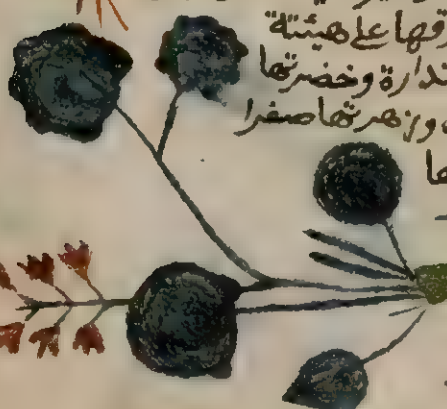 وقها على هيئة
ندارة وخضرتها
وزهرتها صفرا
ها